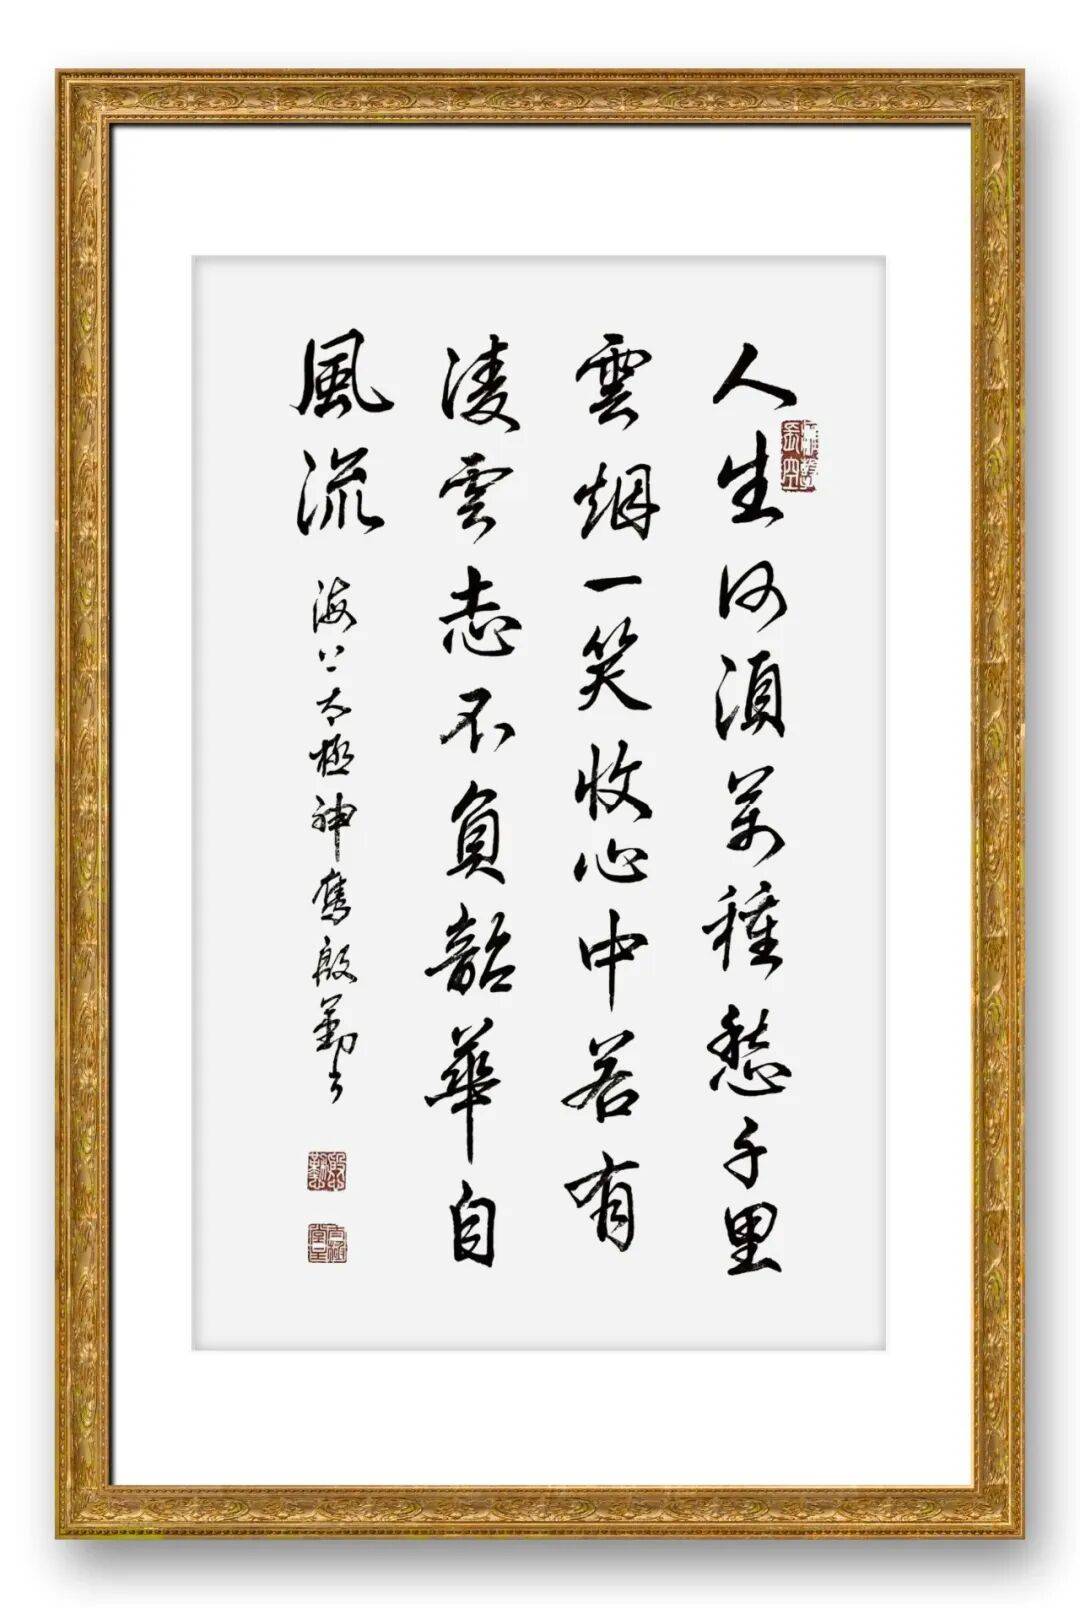 人生何須萬種愁千里
雲烟一笑收心中若有
淩雲志不負韶華自
風流
海上太極神鷹殷勤書
鷹擊長空